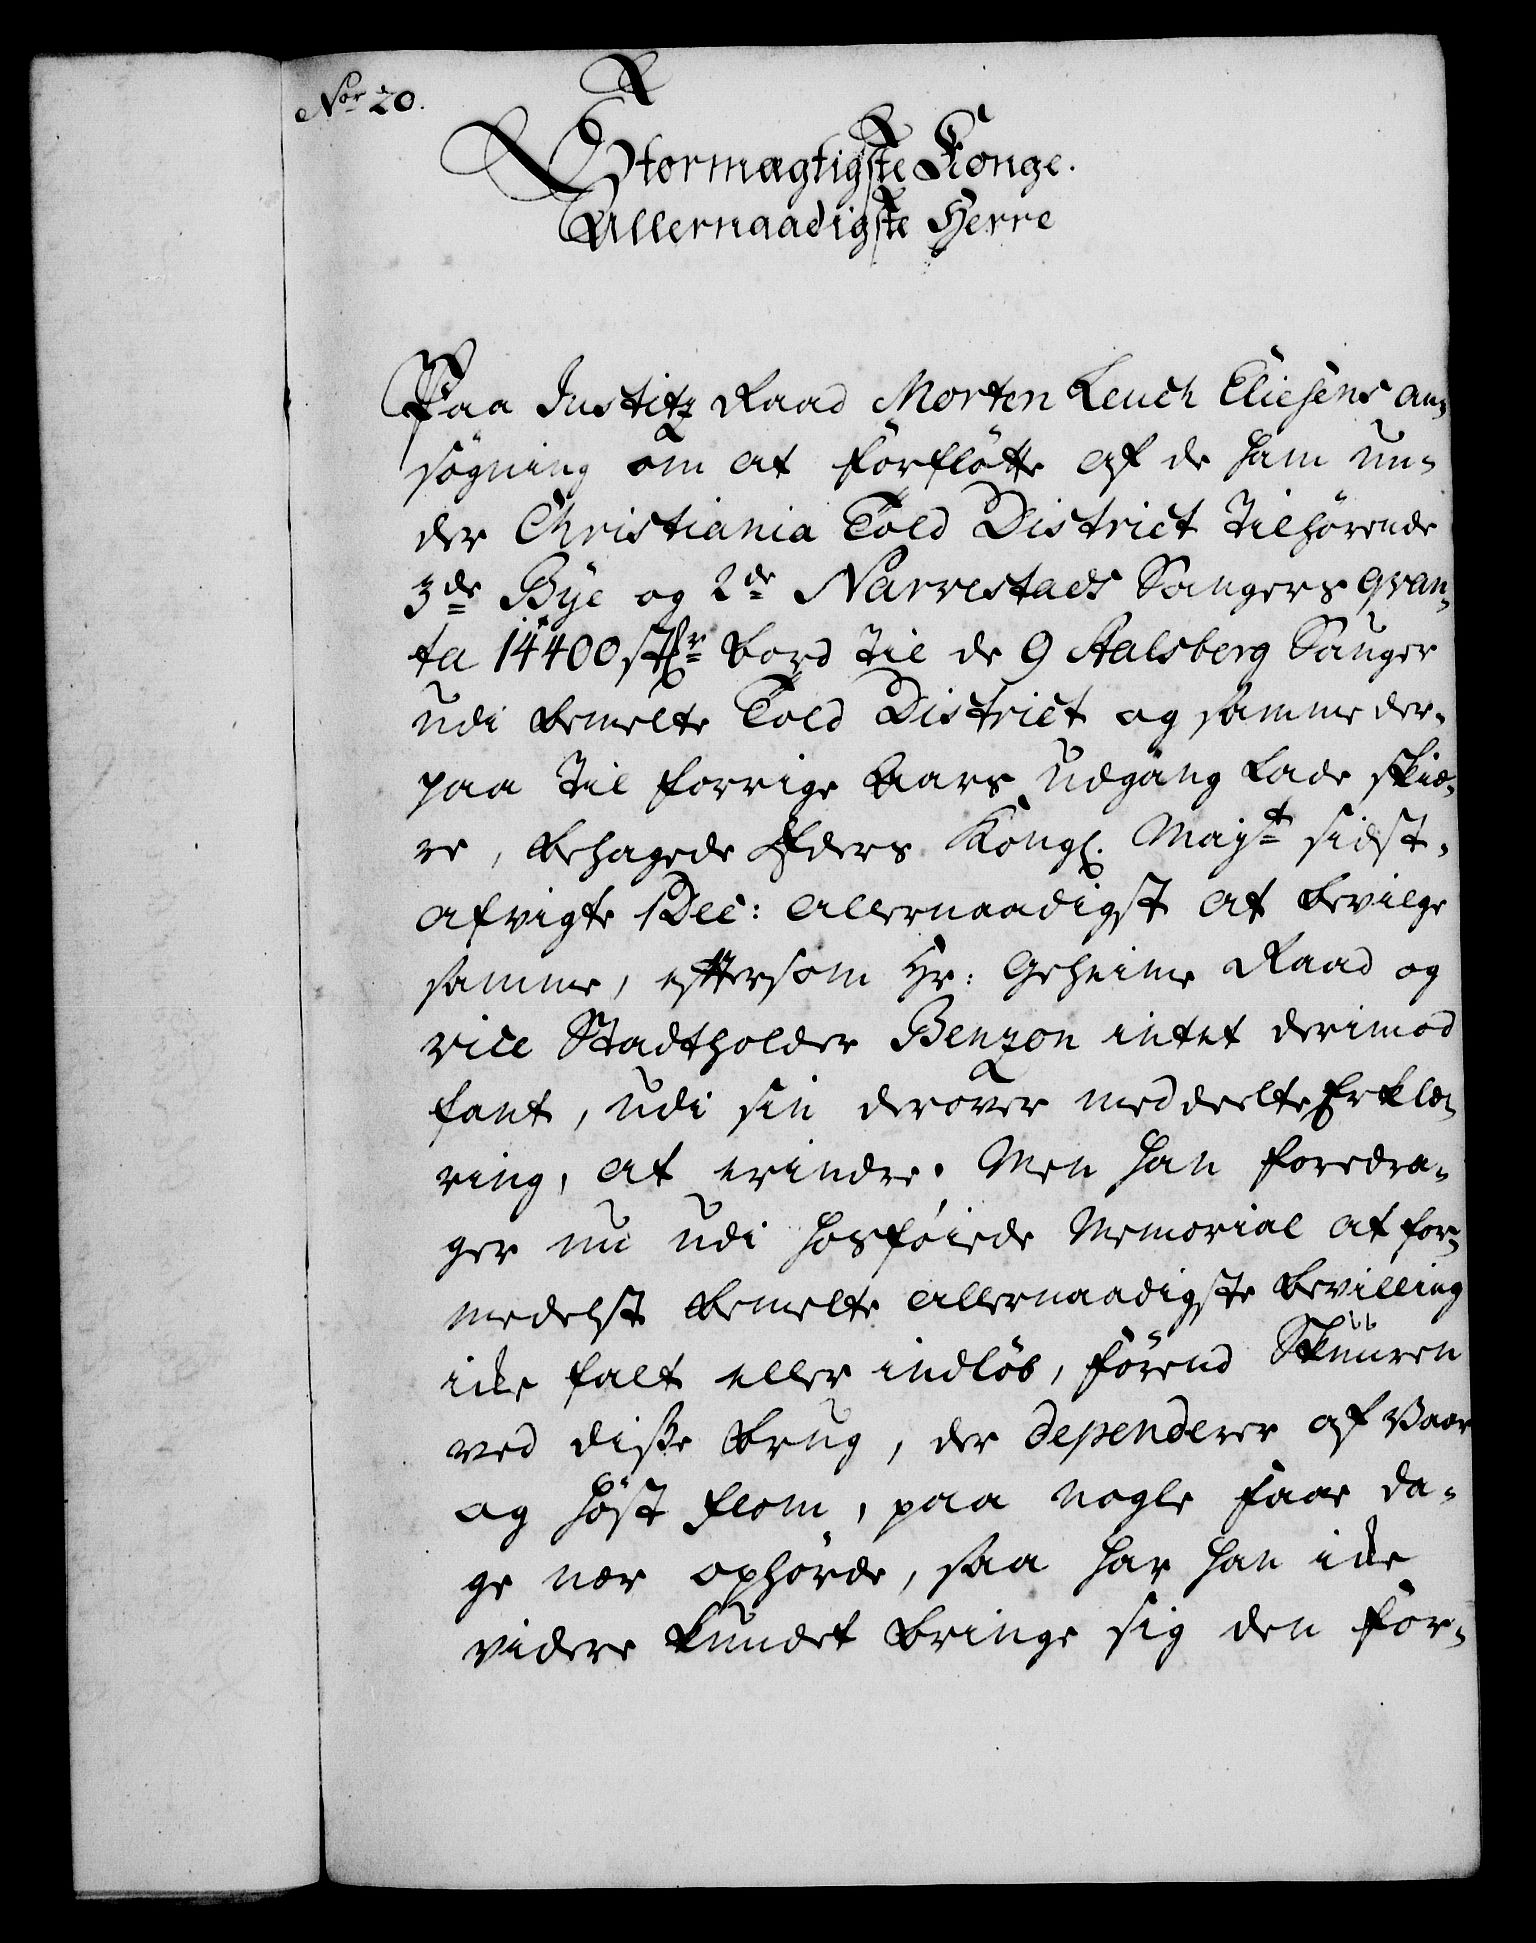 Nor 20.
Stormægtigste Konge.
Allernaadigste Herre
Paa Justitz Raad Morten Leuch Eliesens an-
søgning om at forflötte af de ham un-
der Christiania Told District tilhörende
3de Bye og 2de Narrestads Sauger qvan-
ta 14400 stkr bord til de 9 Aalsberg Sauger
udi bemelte Told District og samme der-
paa til forrige Aars udgang lade skiæ-
re, behagede Eders Kongl. Mayt sidst-
afvigte Dec: allernaadigst at bevilge
samme, eftersom Hr: Geheime Raad og
vice Stadtholder Benzon intet derimod
fant, udi sin derover meddeelte Erklæ-
ring, at erindre. Men han foredra-
ger nu udi hosföiede Memorial at for-
medelst bemelte allernaadigste bevilling
icke falt eller indlöb, förend Skuuren
ved disse brug, der dependerer af Vaar
og höst flom, paa nogle faae da-
ge nær ophörde, saa har han icke
videre kundet bringe sig den for-